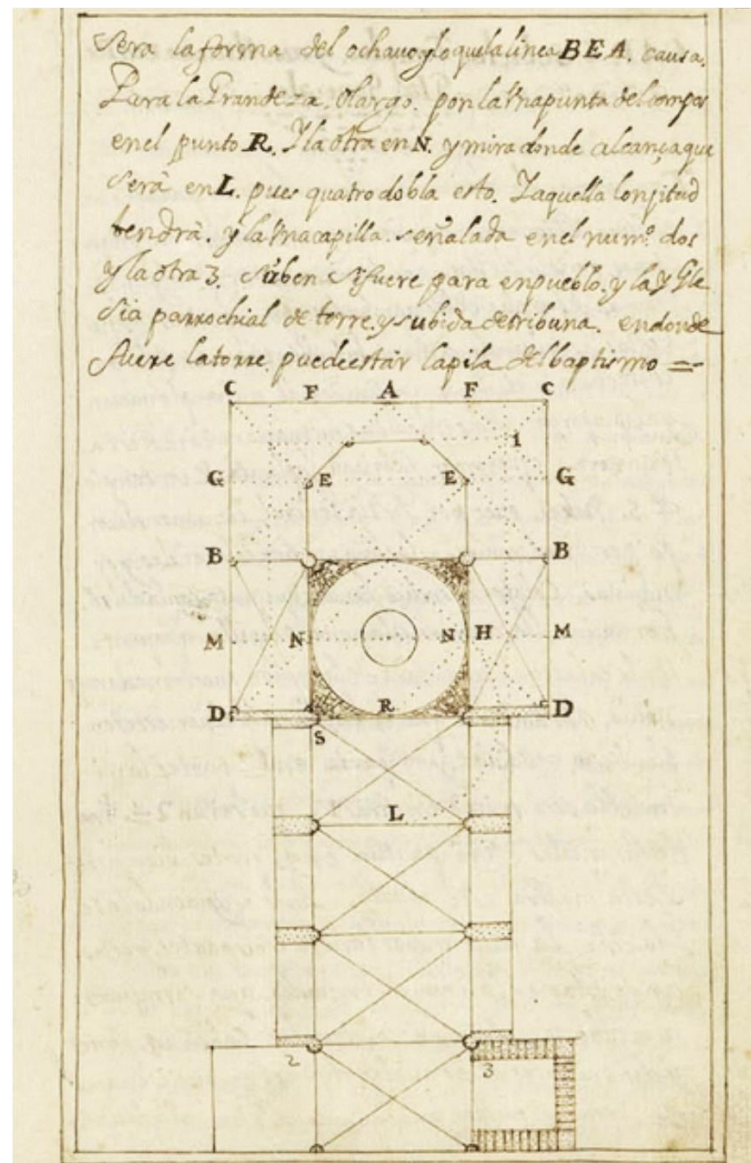 sera la forma del ochauo, y lo que la linea BEA. causa.
Para la Grandeza. o largo. pon la vna punta del compas
en el punto R. Y la otra en N. y mira donde alcança que
serà en L. pues quatro dobla esto. Y aquella lonjitud
tendrà. y la vna capilla. señalada en el numº dos
y la otra 3. si fuere para en pueblo. y la Ygle
sia parrochial de torre. y subida de tribuna. en donde
fuere la torre. puede estàr la pila del baptismo =
C F A F C
1
G E E G
B B
M N N H M
D R D
S
L
2 3